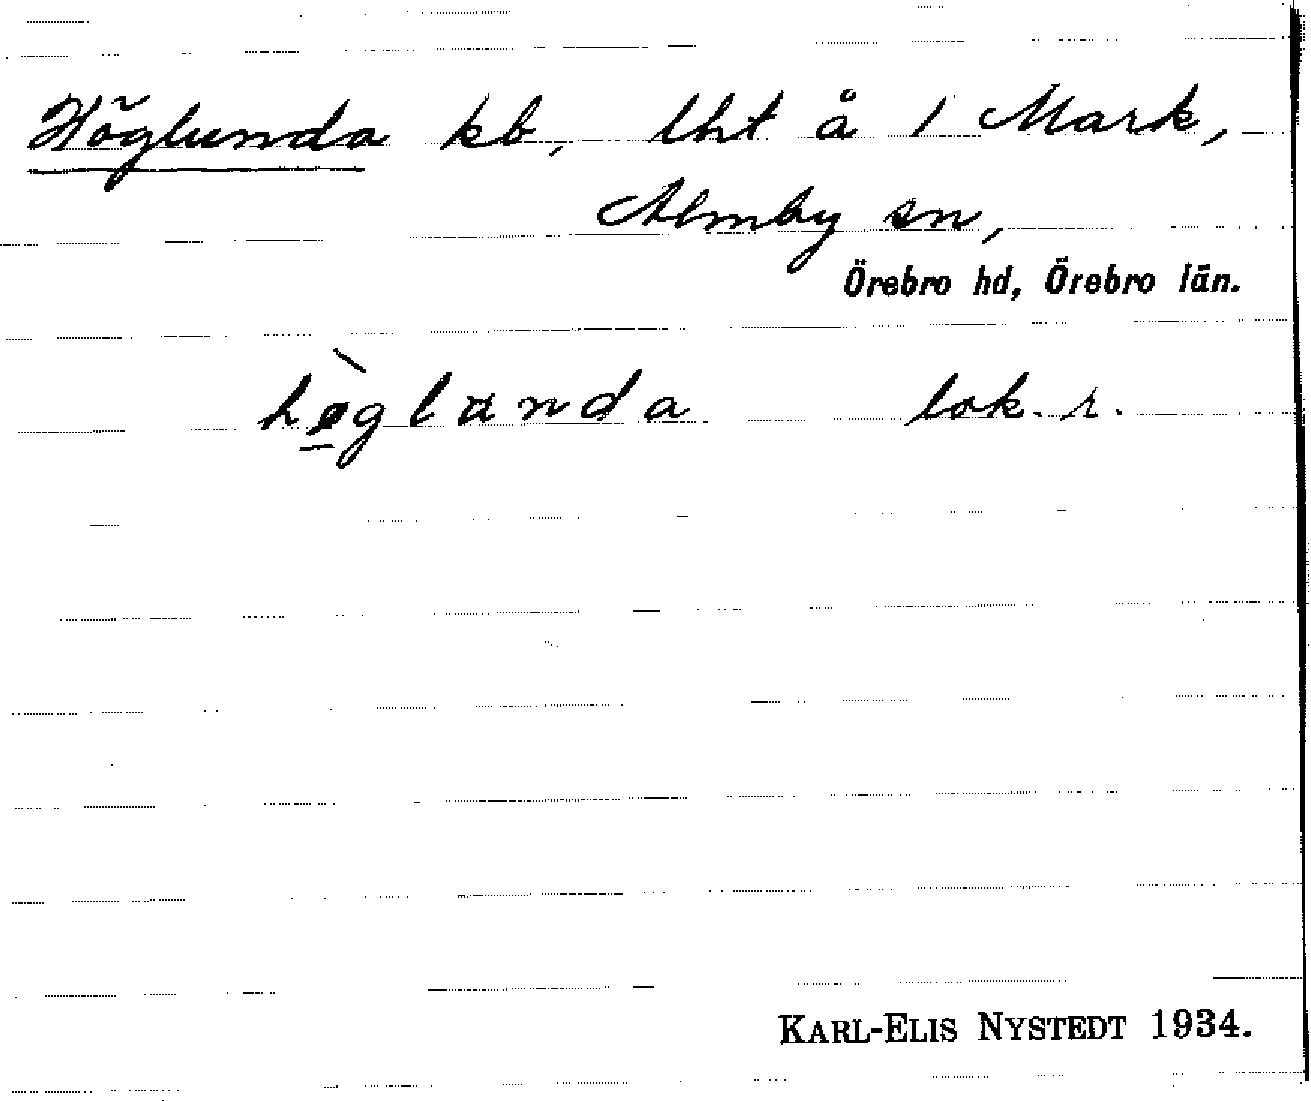 Höglunda kb, lht å 1 Mark,
Almby sn,
Örebro hd, Örebro län.
hø̀glunda lok. r.
KARL-ELIS NYSTEDT 1934.